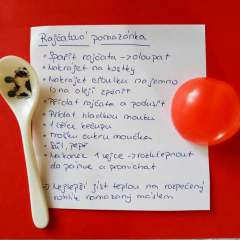 Rajčatová pomazánka
• Spařit rajčata → oloupat
• Nakrájet na kostky
• Nakrájet cibulku na jemno
a na oleji zpěnit
• Přidat rajčata a podusit
• Přidat hladkou mouku
• 1 lžíci kečupu
• trošku cukru moučka
• Sůl, pepř
• Nakonec 1 vejce → rozklepnout
do pánve a promíchat
→ Nejlepší jíst teplou na rozpečený
rohlík namazaný máslem